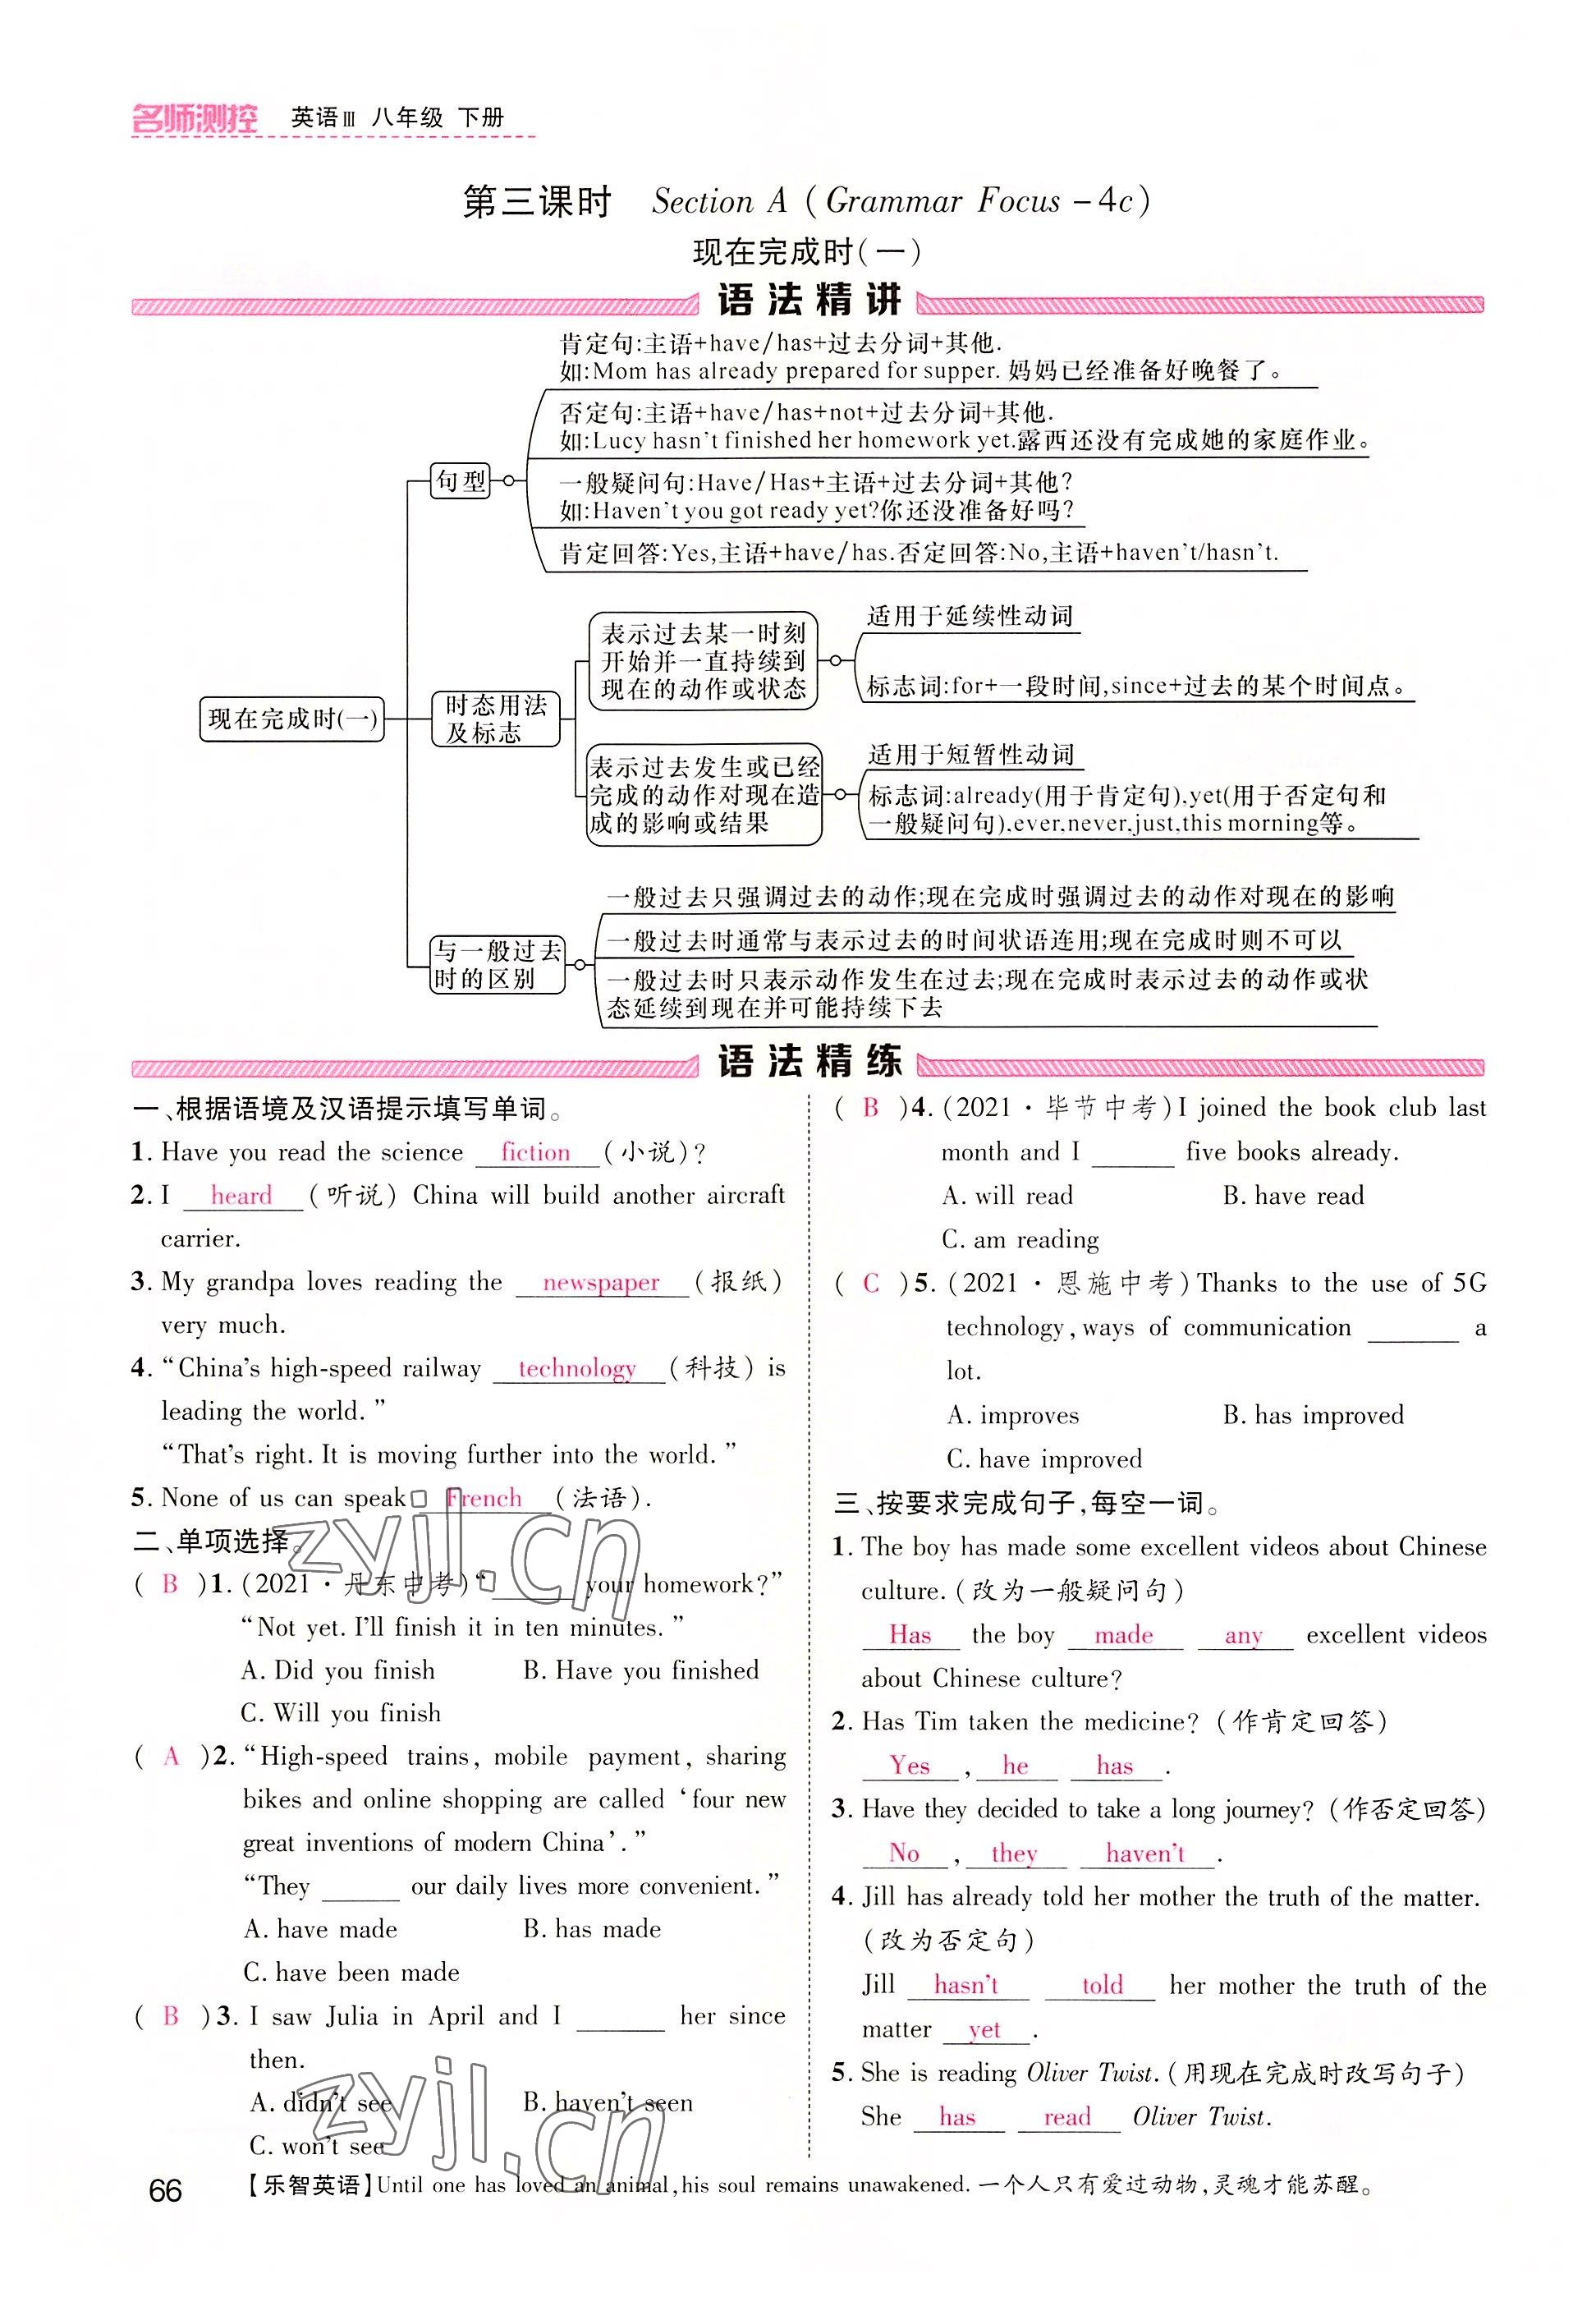 名师测控 英语Ⅲ 八年级 下册
第三课时 Section A (Grammar Focus-4c)
现在完成时(一)
语法精讲
肯定句:主语+have/has+过去分词+其他.
如:Mom has already prepared for supper. 妈妈已经准备好晚餐了。
否定句:主语+have/has+not+过去分词+其他.
如:Lucy hasn't finished her homework yet.露西还没有完成她的家庭作业。
句型
一般疑问句:Have/Has+主语+过去分词+其他?
如:Haven't you got ready yet?你还没准备好吗?
肯定回答:Yes,主语+have/has.否定回答:No,主语+haven't/hasn't.
现在完成时(一)
时态用法
及标志
表示过去某一时刻
开始并一直持续到
现在的动作或状态
适用于延续性动词
标志词:for+一段时间,since+过去的某个时间点。
表示过去发生或已经
完成的动作对现在造
成的影响或结果
适用于短暂性动词
标志词:already(用于肯定句),yet(用于否定句和
一般疑问句),ever,never,just,this morning等。
与一般过去
时的区别
一般过去只强调过去的动作;现在完成时强调过去的动作对现在的影响
一般过去时通常与表示过去的时间状语连用;现在完成时则不可以
一般过去时只表示动作发生在过去;现在完成时表示过去的动作或状
态延续到现在并可能持续下去
语法精练
一、根据语境及汉语提示填写单词。
1. Have you read the science fiction (小说)?
2. I heard (听说) China will build another aircraft
carrier.
3. My grandpa loves reading the newspaper (报纸)
very much.
4. “China's high-speed railway technology (科技) is
leading the world.”
“That's right. It is moving further into the world.”
5. None of us can speak French (法语).
二、单项选择。
( B )1. (2021·丹东中考) “______ your homework?”
“Not yet. I'll finish it in ten minutes.”
A. Did you finish B. Have you finished
C. Will you finish
( A )2. “High-speed trains, mobile payment, sharing
bikes and online shopping are called ‘four new
great inventions of modern China’.”
“They ______ our daily lives more convenient.”
A. have made B. has made
C. have been made
( B )3. I saw Julia in April and I ______ her since
then.
A. didn't see B. haven't seen
C. won't see
( B )4. (2021·毕节中考) I joined the book club last
month and I ______ five books already.
A. will read B. have read
C. am reading
( C )5. (2021·恩施中考) Thanks to the use of 5G
technology, ways of communication ______ a
lot.
A. improves B. has improved
C. have improved
三、按要求完成句子,每空一词。
1. The boy has made some excellent videos about Chinese
culture. (改为一般疑问句)
Has the boy made any excellent videos
about Chinese culture?
2. Has Tim taken the medicine? (作肯定回答)
Yes , he has .
3. Have they decided to take a long journey? (作否定回答)
No , they haven't .
4. Jill has already told her mother the truth of the matter.
(改为否定句)
Jill hasn't told her mother the truth of the
matter yet .
5. She is reading Oliver Twist. (用现在完成时改写句子)
She has read Oliver Twist.
zyjl.cn
zyjl.cn
66 【乐智英语】Until one has loved an animal, his soul remains unawakened. 一个人只有爱过动物,灵魂才能苏醒。